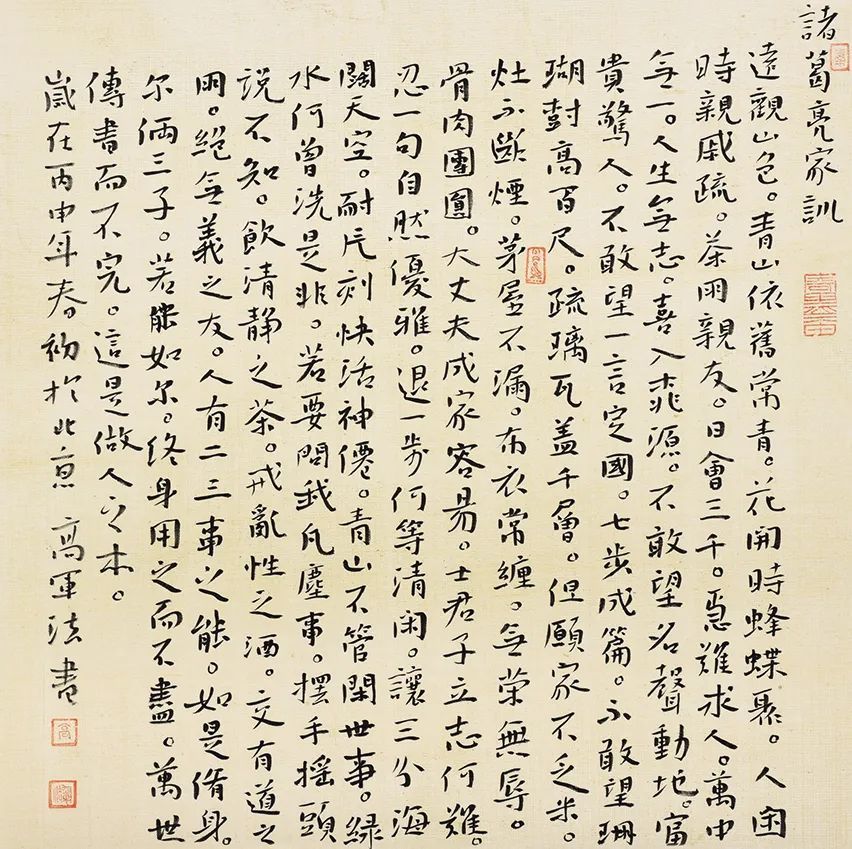 諸葛亮家訓
遠觀山色。青山依舊常青。花開時蜂蝶聚。人困
時親戚疏。茶雨親友。日會三千。急難求人。萬中
無一。人生無志。喜入桃源。不敢望名聲動地。富
貴驚人。不敢望一言定國。七步成篇。不敢望珊
瑚樹高百尺。疏璃瓦蓋千層。但願家不乏米。
灶不斷煙。茅屋不漏。布衣常纏。無榮無辱。
骨肉團圓。大丈夫成家容易。士君子立志何難。
忍一句自然優雅。退一步何等清閑。讓三分海
闊天空。耐片刻快活神僊。青山不管閑世事。綠
水何曾洗是非。若要問我凡塵事。擺手搖頭
說不知。飲清靜之茶。戒亂性之酒。交有道之
朋。絕無義之友。人有二三事之能。如是脩身。
尔倆三子。若能如尔。終身用之而不盡。萬世
傳書而不完。這是做人之本。
歲在丙申年春初於北京 高軍法書